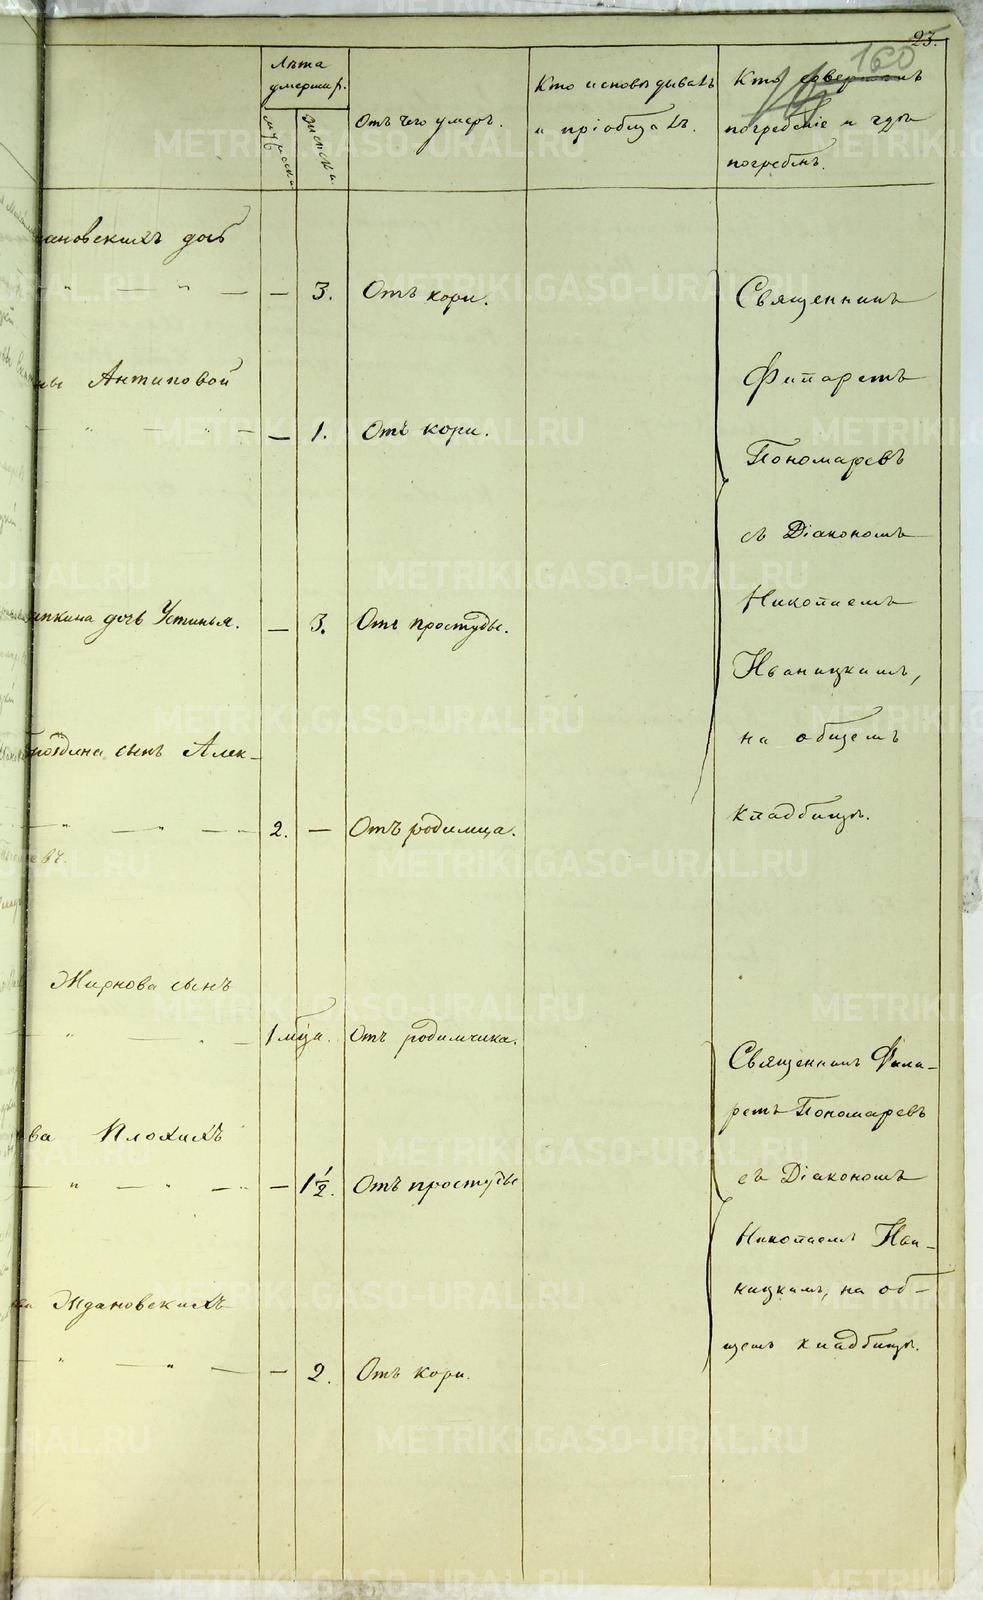 25.
160
Лѣта
умершаг.
мужеска.
женска.
Отъ чего умеръ.
Кто исповѣдывалъ
и пріобщалъ.
Кто совершалъ
погребеніе и гдѣ
погребенъ.
ановскихъ дочь
" — " — — 3. Отъ кори.
Антиповой
— 1. Отъ кори.
Священникъ
Филаретъ
Пономаревъ
съ Діакономъ
Николаемъ
Иваницкимъ,
на общемъ
кладбищѣ.
пкина дочь Устинья. — 3. Отъ простуды.
сынъ Алек-
2. — Отъ родимца.
Жирнова сынъ
1 мца. Отъ родимчика.
ва Плохихъ
— " — " — — 1 1/2. Отъ простуды
Ждановскихъ
" — " — — 2. Отъ кори.
Священникъ Фила-
ретъ Пономаревъ
съ Діакономъ
Николаемъ Ива-
ницкимъ, на об-
щемъ кладбищѣ.
METRIKI.GASO-URAL.RU